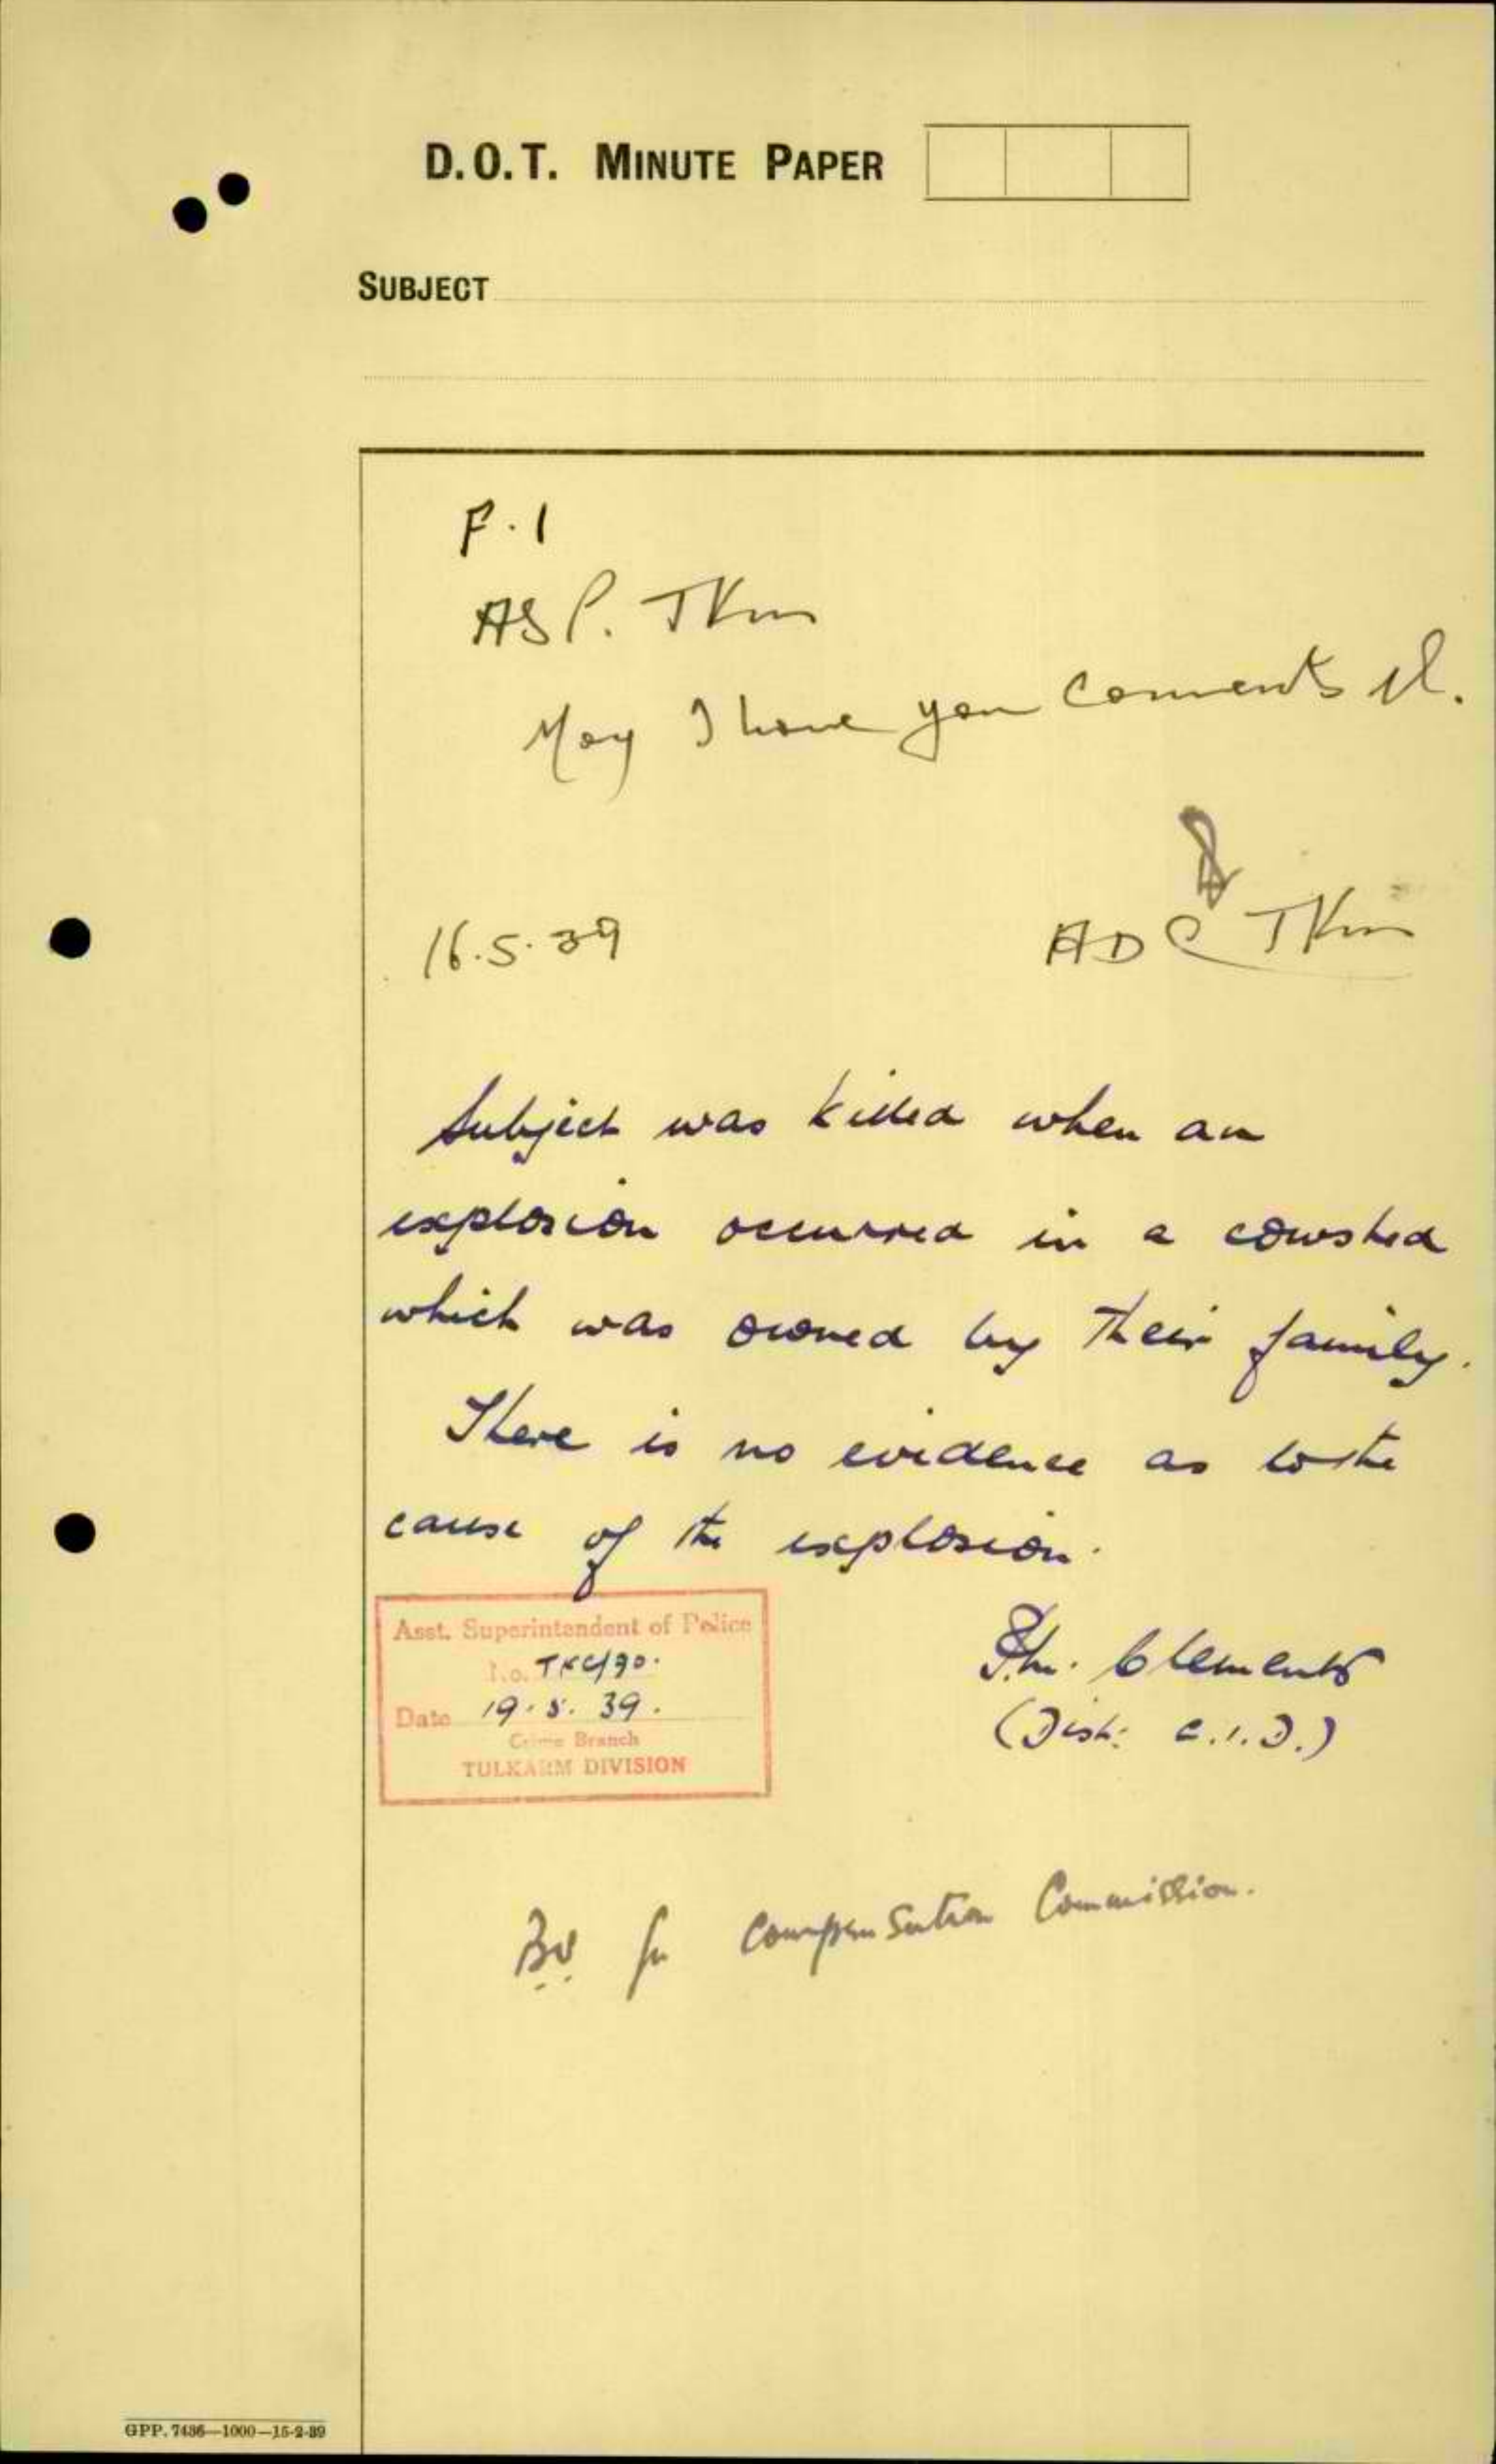 D.O.T. MINUTE PAPER
SUBJECT
F.1
ASP. TKm
May I have you coments pl.
16.5.39
ADC TKm
Subject was killed when an
explosion occurred in a cowshed
which was owned by their family.
There is no evidence as to the
cause of the explosion.
Asst. Superintendent of Police
No. TKC/90.
Date 19.5.39.
Crime Branch
TULKARM DIVISION
Clements
(Dist: C.I.D.)
BU for Compensation Commission.
GPP. 7436—1000—15-2-39